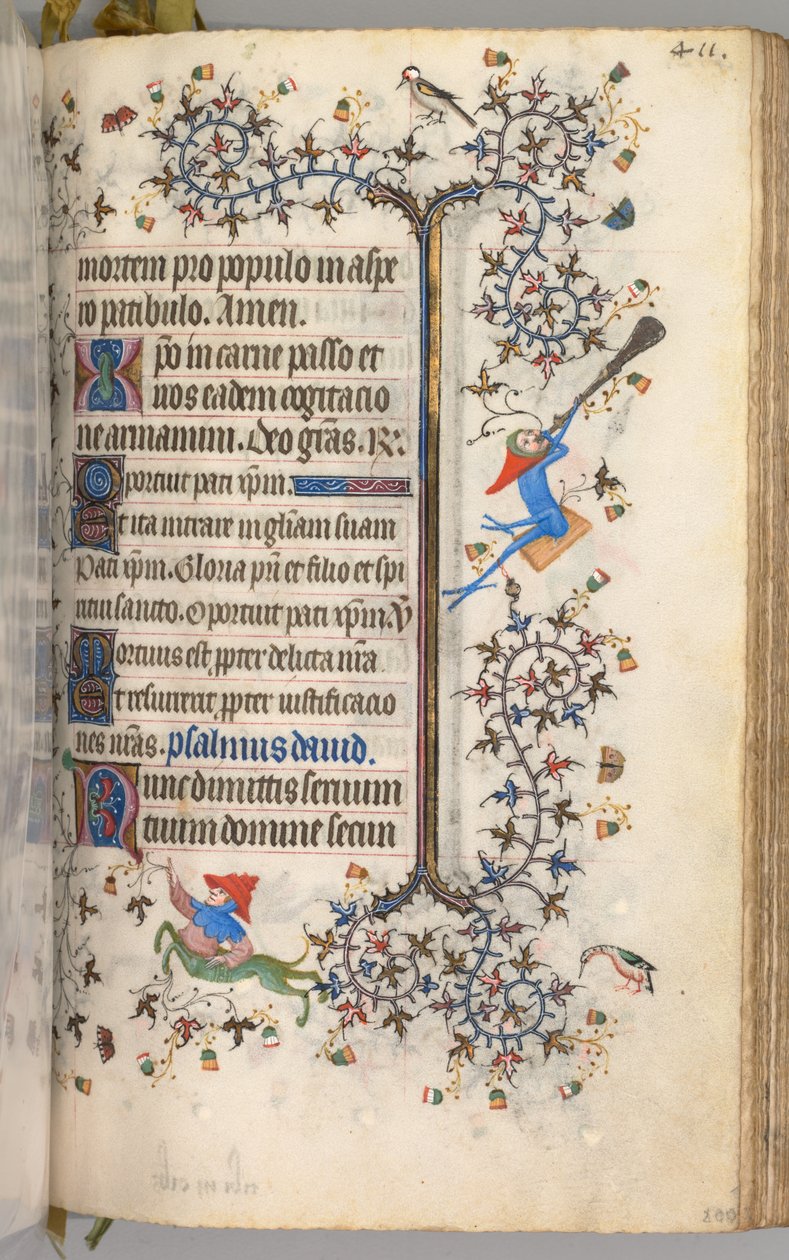 411.
mortem pro populo in aspe
ro patibulo. Amen.
Xp̄o in carne passo et
uos eadem cogitacio
ne armamini. Deo gr̃as. R̷.
Oportuit pati xp̄m.
Et ita intrare in gl̃iam suam
Pati xp̄m. Gloria pr̃i et filio et spi
ritui sancto. Oportuit pati xp̄m. V̷
Mortuus est ꝓpter delicta nr̃a
Et resurrexit ꝓpter iustificacio
nes nr̃as. psalmus dauid.
Nunc dimittis seruum
tuum domine secun
200